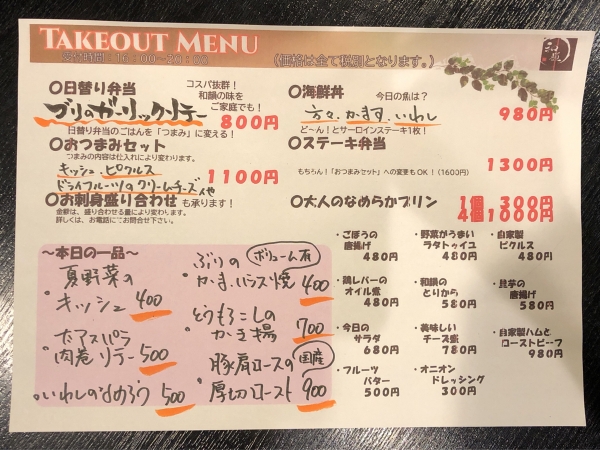 TAKEOUT MENU
受付時間：16:00〜20:00
（価格は全て税別となります。）
○日替り弁当
コスパ抜群！
和韻の味を
ご家庭でも！
ブリのガーリックソテー
800円
日替り弁当のごはんを「つまみ」に変える！
○おつまみセット
つまみの内容は仕入れにより変わります。
キッシュ、ピクルス
ドライフルーツのクリームチーズ
1100円
○お刺身盛り合わせも承ります！
金額は、盛り合わせる量により変わります。
詳しくは、お電話にてお問合せ下さい。
○海鮮丼
今日の魚は？
かます、いわし
980円
ど〜ん！とサーロインステーキ1枚！
○ステーキ弁当
1300円
もちろん！「おつまみセット」への変更もOK！（1600円）
○大人のなめらかプリン
1個 300円
4個1000円
〜本日の一品〜
夏野菜の
キッシュ 400
・太アスパラ
肉巻ソテー 500
・いわしのなめろう 500
・ぶりの
ボリューム有
かま、ハラス焼 400
・とうもろこしの
かき揚 700
・豚肩ロースの
国産
厚切ロースト 900
・ごぼうの
唐揚げ
480円
・野菜がうまい
ラタトゥイユ
480円
・自家製
ピクルス
480円
・鶏レバーの
オイル煮
480円
・和韻の
とりから
580円
・里芋の
唐揚げ
580円
・今日の
サラダ
680円
・美味しい
チーズ盛
780円
・自家製ハムと
ローストビーフ
980円
・フルーツ
バター
500円
・オニオン
ドレッシング
300円